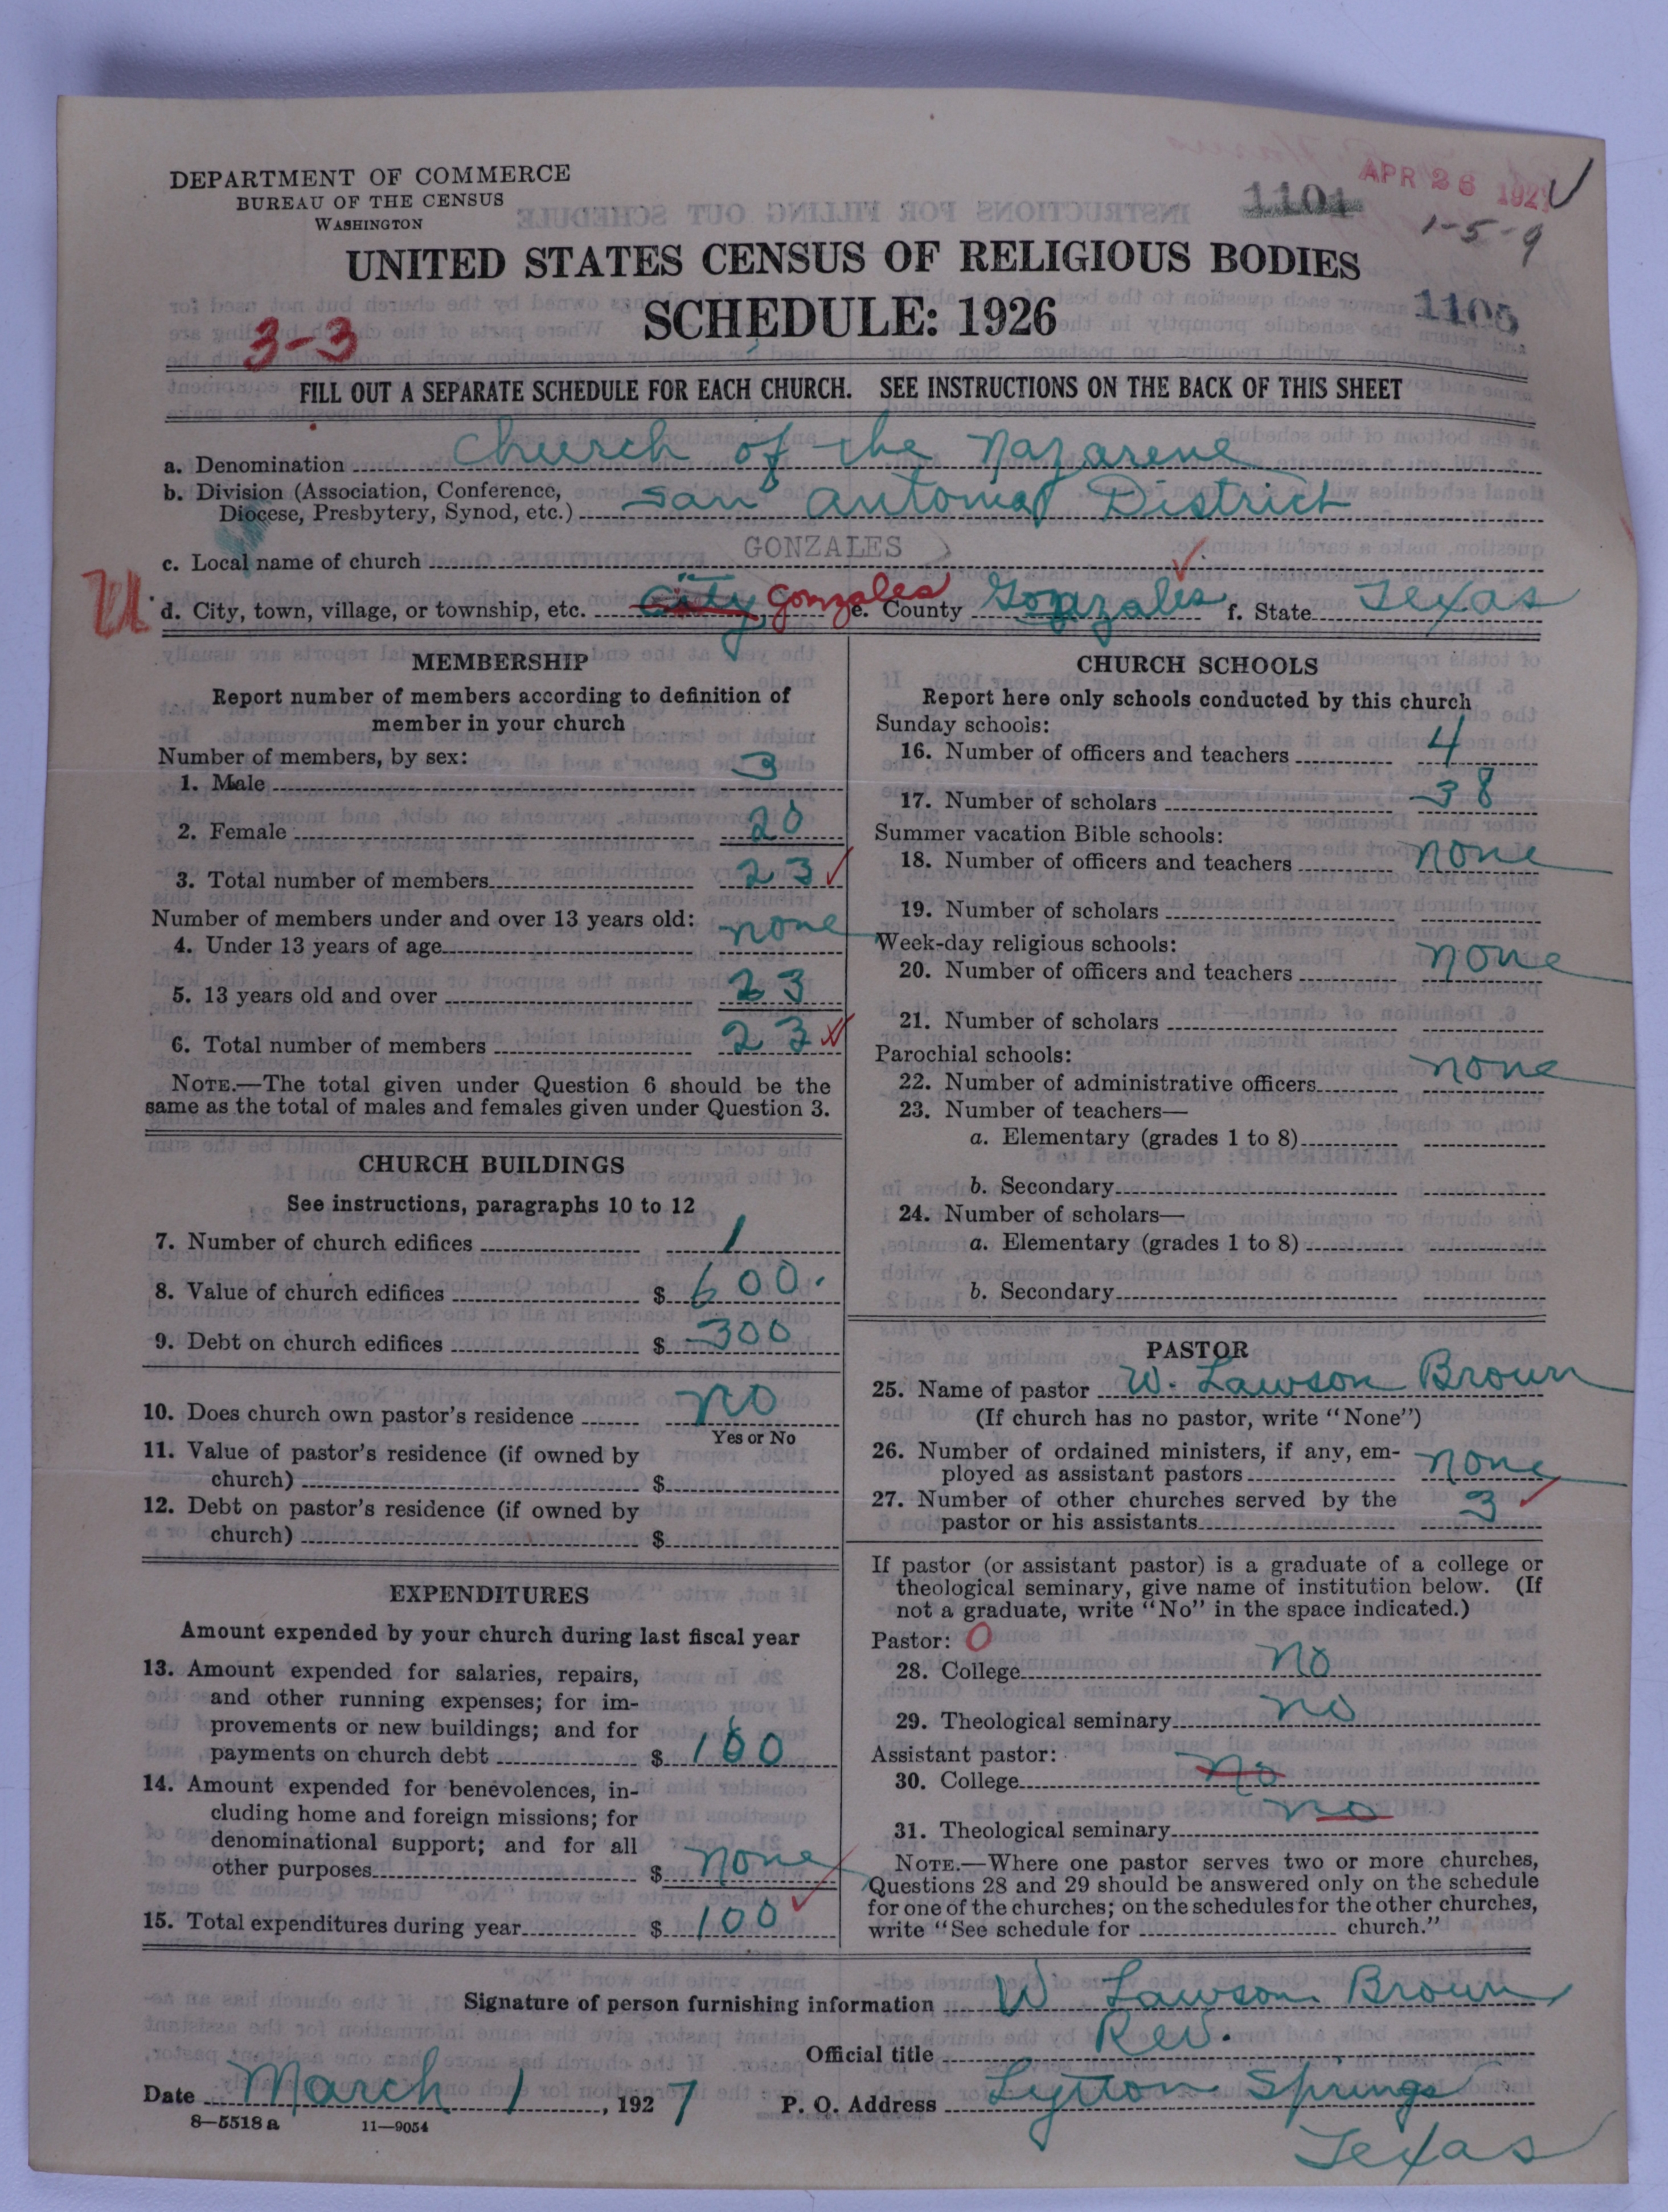 DEPARTMENT OF COMMERCE
BUREAU OF THE CENSUS
WASHINGTON
APR 26 192
1101
1-5-9
UNITED STATES CENSUS OF RELIGIOUS BODIES
SCHEDULE: 1926
1105
3-3
FILL OUT A SEPARATE SCHEDULE FOR EACH CHURCH. SEE INSTRUCTIONS ON THE BACK OF THIS SHEET
a. Denomination Church of the Nazarene
b. Division (Association, Conference,
Diocese, Presbytery, Synod, etc.) San Antonio District
c. Local name of church GONZALES
d. City, town, village, or township, etc. City, Gonzales e. County Gonzales f. State Texas
MEMBERSHIP
Report number of members according to definition of
member in your church
Number of members, by sex:
1. Male 3
2. Female 20
3. Total number of members 23
Number of members under and over 13 years old:
4. Under 13 years of age none
5. 13 years old and over 23
6. Total number of members 23
NOTE.—The total given under Question 6 should be the
same as the total of males and females given under Question 3.
CHURCH BUILDINGS
See instructions, paragraphs 10 to 12
7. Number of church edifices 1
8. Value of church edifices $ 600.
9. Debt on church edifices $ 300
10. Does church own pastor's residence no
Yes or No
11. Value of pastor's residence (if owned by
church) $
12. Debt on pastor's residence (if owned by
church) $
EXPENDITURES
Amount expended by your church during last fiscal year
13. Amount expended for salaries, repairs,
and other running expenses; for im-
provements or new buildings; and for
payments on church debt $ 100
14. Amount expended for benevolences, in-
cluding home and foreign missions; for
denominational support; and for all
other purposes $ none
15. Total expenditures during year $ 100
CHURCH SCHOOLS
Report here only schools conducted by this church
Sunday schools:
16. Number of officers and teachers 4
17. Number of scholars 38
Summer vacation Bible schools:
18. Number of officers and teachers none
19. Number of scholars
Week-day religious schools:
20. Number of officers and teachers none
21. Number of scholars
Parochial schools:
22. Number of administrative officers none
23. Number of teachers—
a. Elementary (grades 1 to 8)
b. Secondary
24. Number of scholars—
a. Elementary (grades 1 to 8)
b. Secondary
PASTOR
25. Name of pastor W. Lawson Brown
(If church has no pastor, write "None")
26. Number of ordained ministers, if any, em-
ployed as assistant pastors none
27. Number of other churches served by the
pastor or his assistants 3
If pastor (or assistant pastor) is a graduate of a college or
theological seminary, give name of institution below. (If
not a graduate, write "No" in the space indicated.)
Pastor: 0
28. College no
29. Theological seminary no
Assistant pastor:
30. College no
31. Theological seminary no
NOTE.—Where one pastor serves two or more churches,
Questions 28 and 29 should be answered only on the schedule
for one of the churches; on the schedules for the other churches,
write "See schedule for church."
Signature of person furnishing information W Lawson Brown
Official title Rev.
Date March 1, 1927 P. O. Address Lytton Springs
Texas
8—5518 a 11—9054